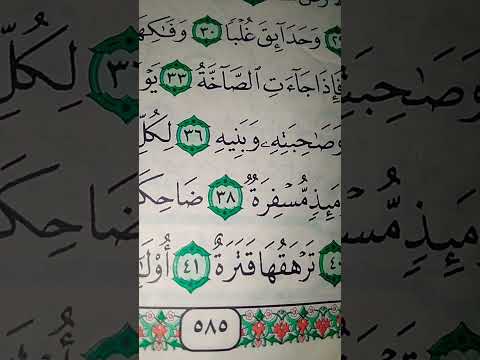 وَحَدَآئِقَ غُلْبًا ٣٠ وَفَـٰكِهَ
فَإِذَا جَآءَتِ ٱلصَّآخَّةُ ٣٣ يَوْ
وَصَـٰحِبَتِهِۦ وَبَنِيهِ ٣٦ لِكُلِّ
مَئِذٍ مُّسْفِرَةٌ ٣٨ ضَاحِكَ
تَرْهَقُهَا قَتَرَةٌ ٤١ أُو۟لَـٰ
٥٨٥